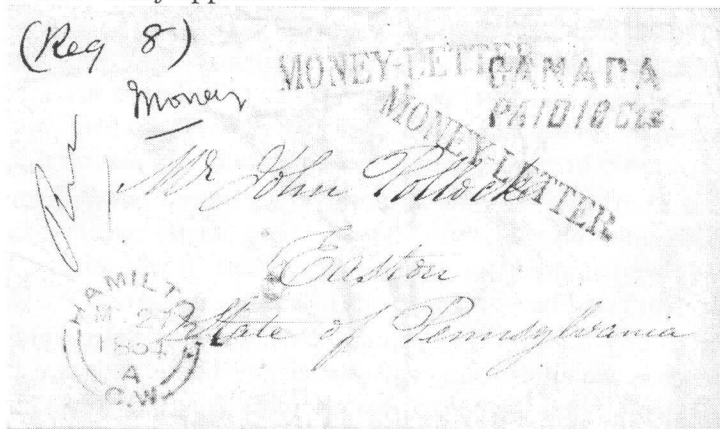 (Reg 8)
Money
MONEY-LETTER
CANADA
PAID 10 Cts
MONEY-LETTER
Mr John Pollock
Easton
State of Pennsylvania
HAMILTON
27
1854
A
C.W.